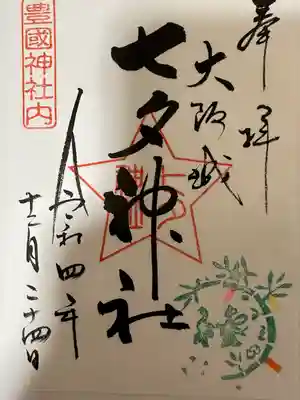 奉拝
大阪城
七夕神社
令和四年
十二月二十四日
豊國神社内